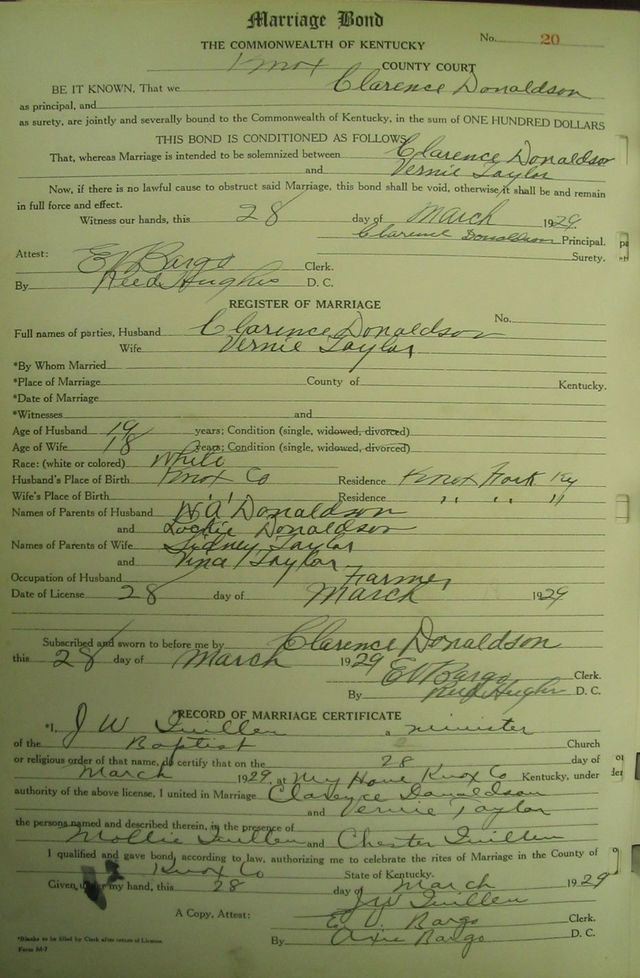 Marriage Bond
No. 20
THE COMMONWEALTH OF KENTUCKY
Knox COUNTY COURT
BE IT KNOWN, That we Clarence Donaldson
as principal, and
as surety, are jointly and severally bound to the Commonwealth of Kentucky, in the sum of ONE HUNDRED DOLLARS
THIS BOND IS CONDITIONED AS FOLLOWS
That, whereas Marriage is intended to be solemnized between Clarence Donaldson
and Vernie Taylor
Now, if there is no lawful cause to obstruct said Marriage, this bond shall be void, otherwise it shall be and remain
in full force and effect.
Witness our hands, this 28 day of March 1929.
Clarence Donaldson Principal.
Surety.
Attest: EV Bargo Clerk.
By Reed Hughes D. C.
REGISTER OF MARRIAGE
No.
Full names of parties, Husband Clarence Donaldson
Wife Vernie Taylor
*By Whom Married
*Place of Marriage County of Kentucky.
*Date of Marriage
*Witnesses and
Age of Husband 19 years; Condition (single, widowed, divorced)
Age of Wife 18 years; Condition (single, widowed, divorced)
Race: (white or colored) White
Husband's Place of Birth Knox Co Residence Knox Fork Ky
Wife's Place of Birth " " Residence " " "
Names of Parents of Husband W.A. Donaldson
and Lockie Donaldson
Names of Parents of Wife Sidney Taylor
and Vina Taylor
Occupation of Husband Farmer
Date of License 28 day of March 1929
Subscribed and sworn to before me by Clarence Donaldson
this 28 day of March 1929
EV Bargo Clerk.
By Reed Hughes D. C.
*RECORD OF MARRIAGE CERTIFICATE
*I, J W Quillen, a minister
of the Baptist Church
or religious order of that name, do certify that on the 28 day of
March 1929, at My Home Knox Co Kentucky, under
authority of the above license, I united in Marriage Clarence Donaldson
and Vernie Taylor
the persons named and described therein, in the presence of
Mollie Quillen and Chester Quillen
I qualified and gave bond, according to law, authorizing me to celebrate the rites of Marriage in the County of
Knox Co State of Kentucky.
Given under my hand, this 28 day of March 1929
JW Quillen
A Copy, Attest: E. V. Bargo Clerk.
By Bargo D. C.
*Blanks to be filled by Clerk after return of License.
Form M-7